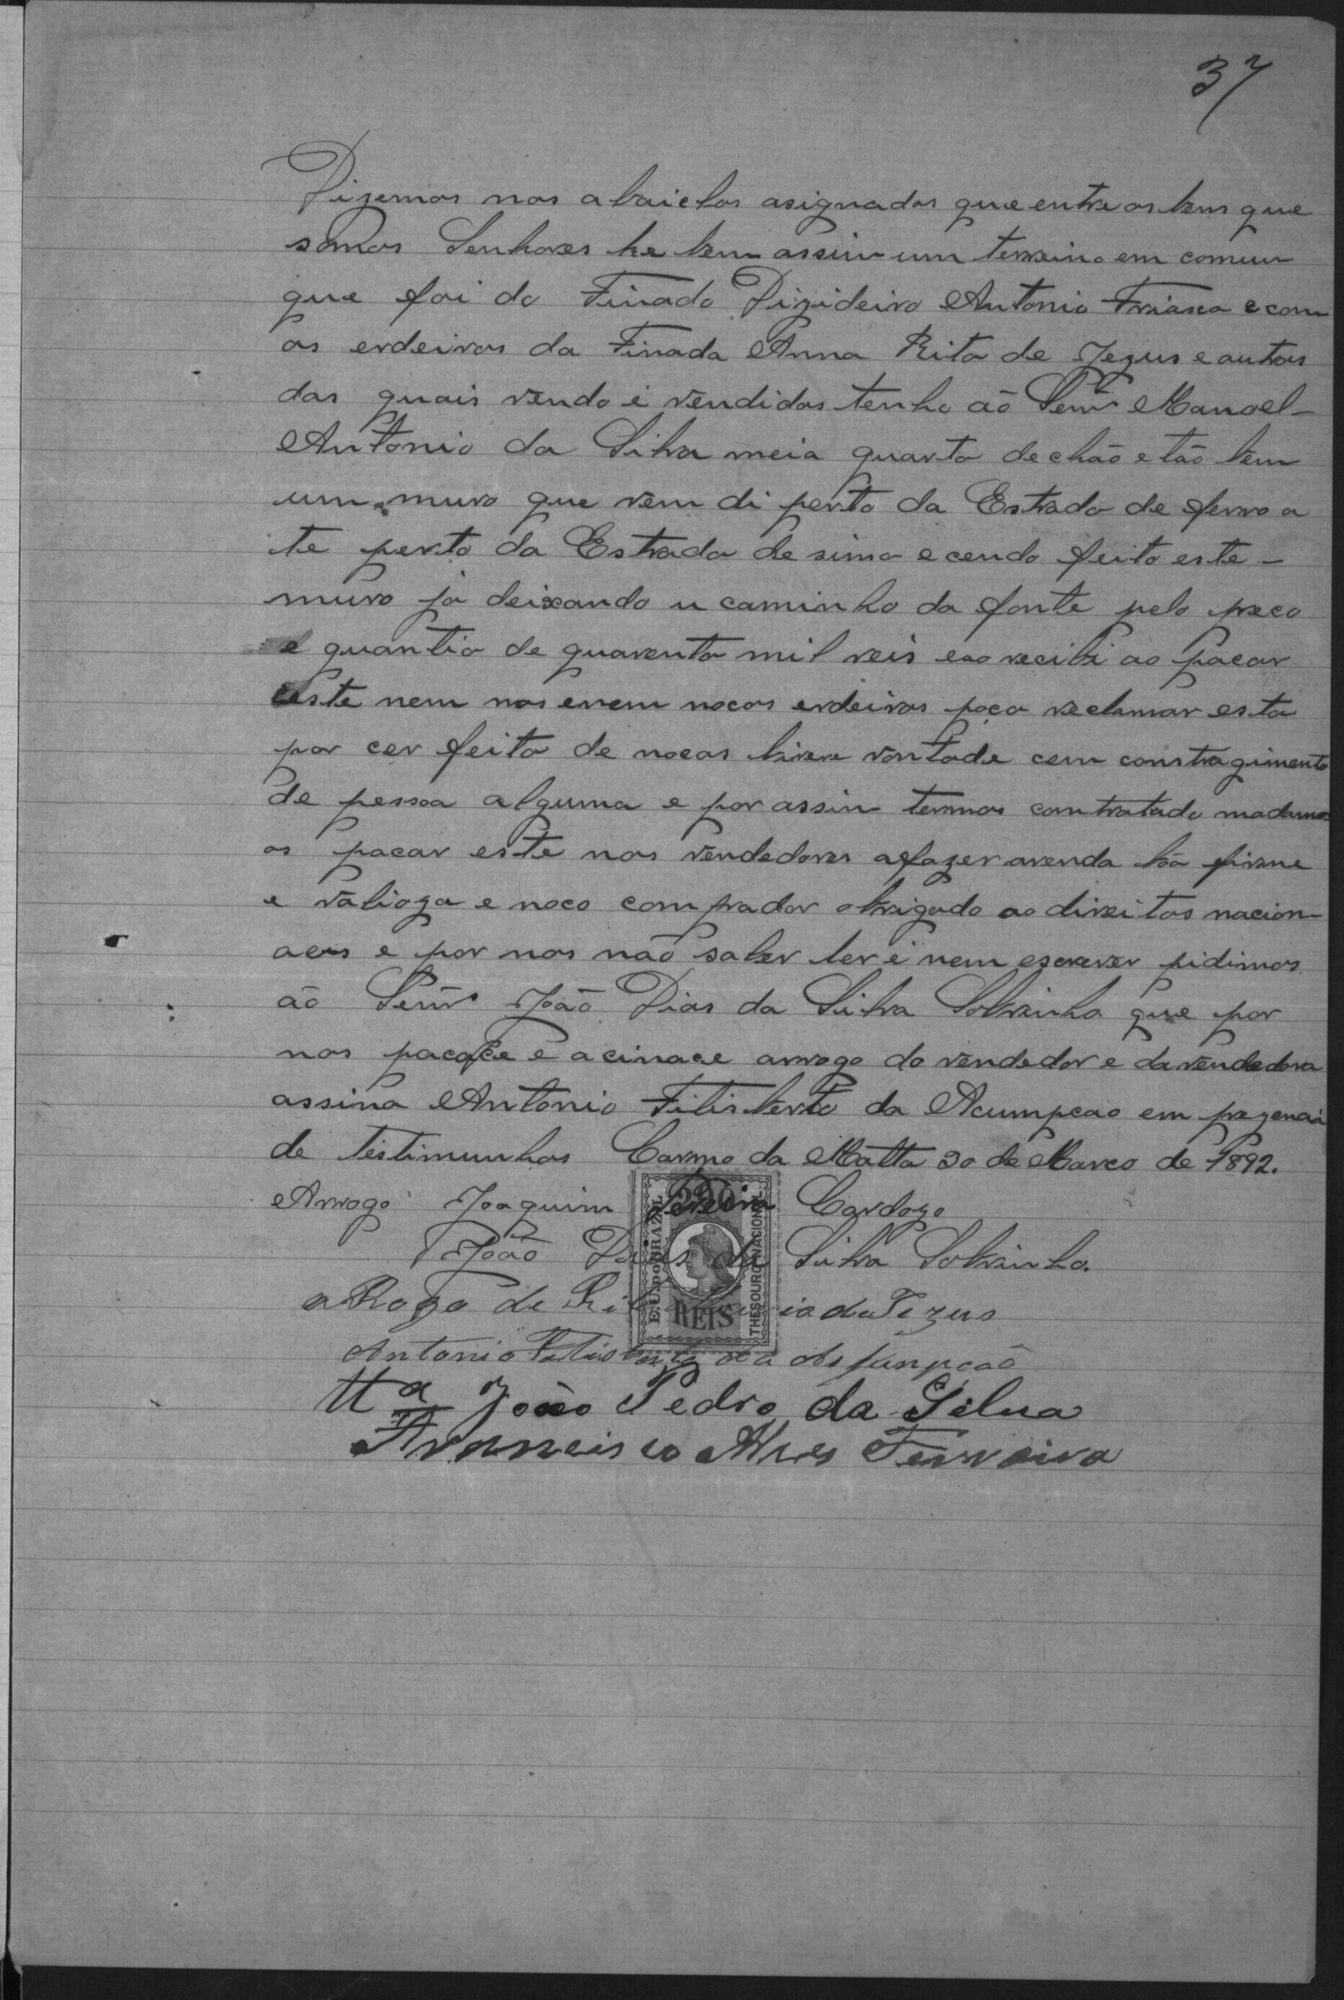 37
Dizemos nos abaichos asignados que entre os bens que
somos Senhores he bem assim um terreino em comum
que foi do Finado Dizideiro Antonio Friasca e com
os erdeiros da Finada Anna Rita de Jezus e outros
das quais vendo i vendidos tenho aõ Senr Manoel
Antonio da Silva meia quarta de chão e tão bem
um muro que vem di perto da Estrada de ferro a
te perto da Estrada de sima e cendo feito este
muro já deixando u caminho da fonte pelo preco
e quantia de quarenta mil reis e ao recibi ao pacar
este nem nos enem nocos erdeiros poca reclamar esta
por cer feita de nocas livre vontade cem constragimento
de pessoa alguma e por assim termos contratado madamos
os pacar este nos vendedores a fazer a venda bõa firme
e valioza e noco comprador obrigado ao direitos nacion
aeis e por nos não saber ler i nem escrever pidimos
aõ Senr João Dias da Silva Sobrinho que por
nos pacace e acinace arrogo do vendedor e da vendedora
assina Antonio Filisberto da Acumpcao em prezencia
de testimunhas Carmo da Matta 30 de Marco de 1892.
Arrogo Joaquim Pereira Cardozo
João Dias da Silva Sobrinho.
a Rogo de Rita Maria de Jezus
Antonio Felisberto da Asumpção
Tta João Pedro da Silva
Francisco Alves Ferreira
200
E.U. DO BRAZIL
THESOURO NACIONAL
REIS